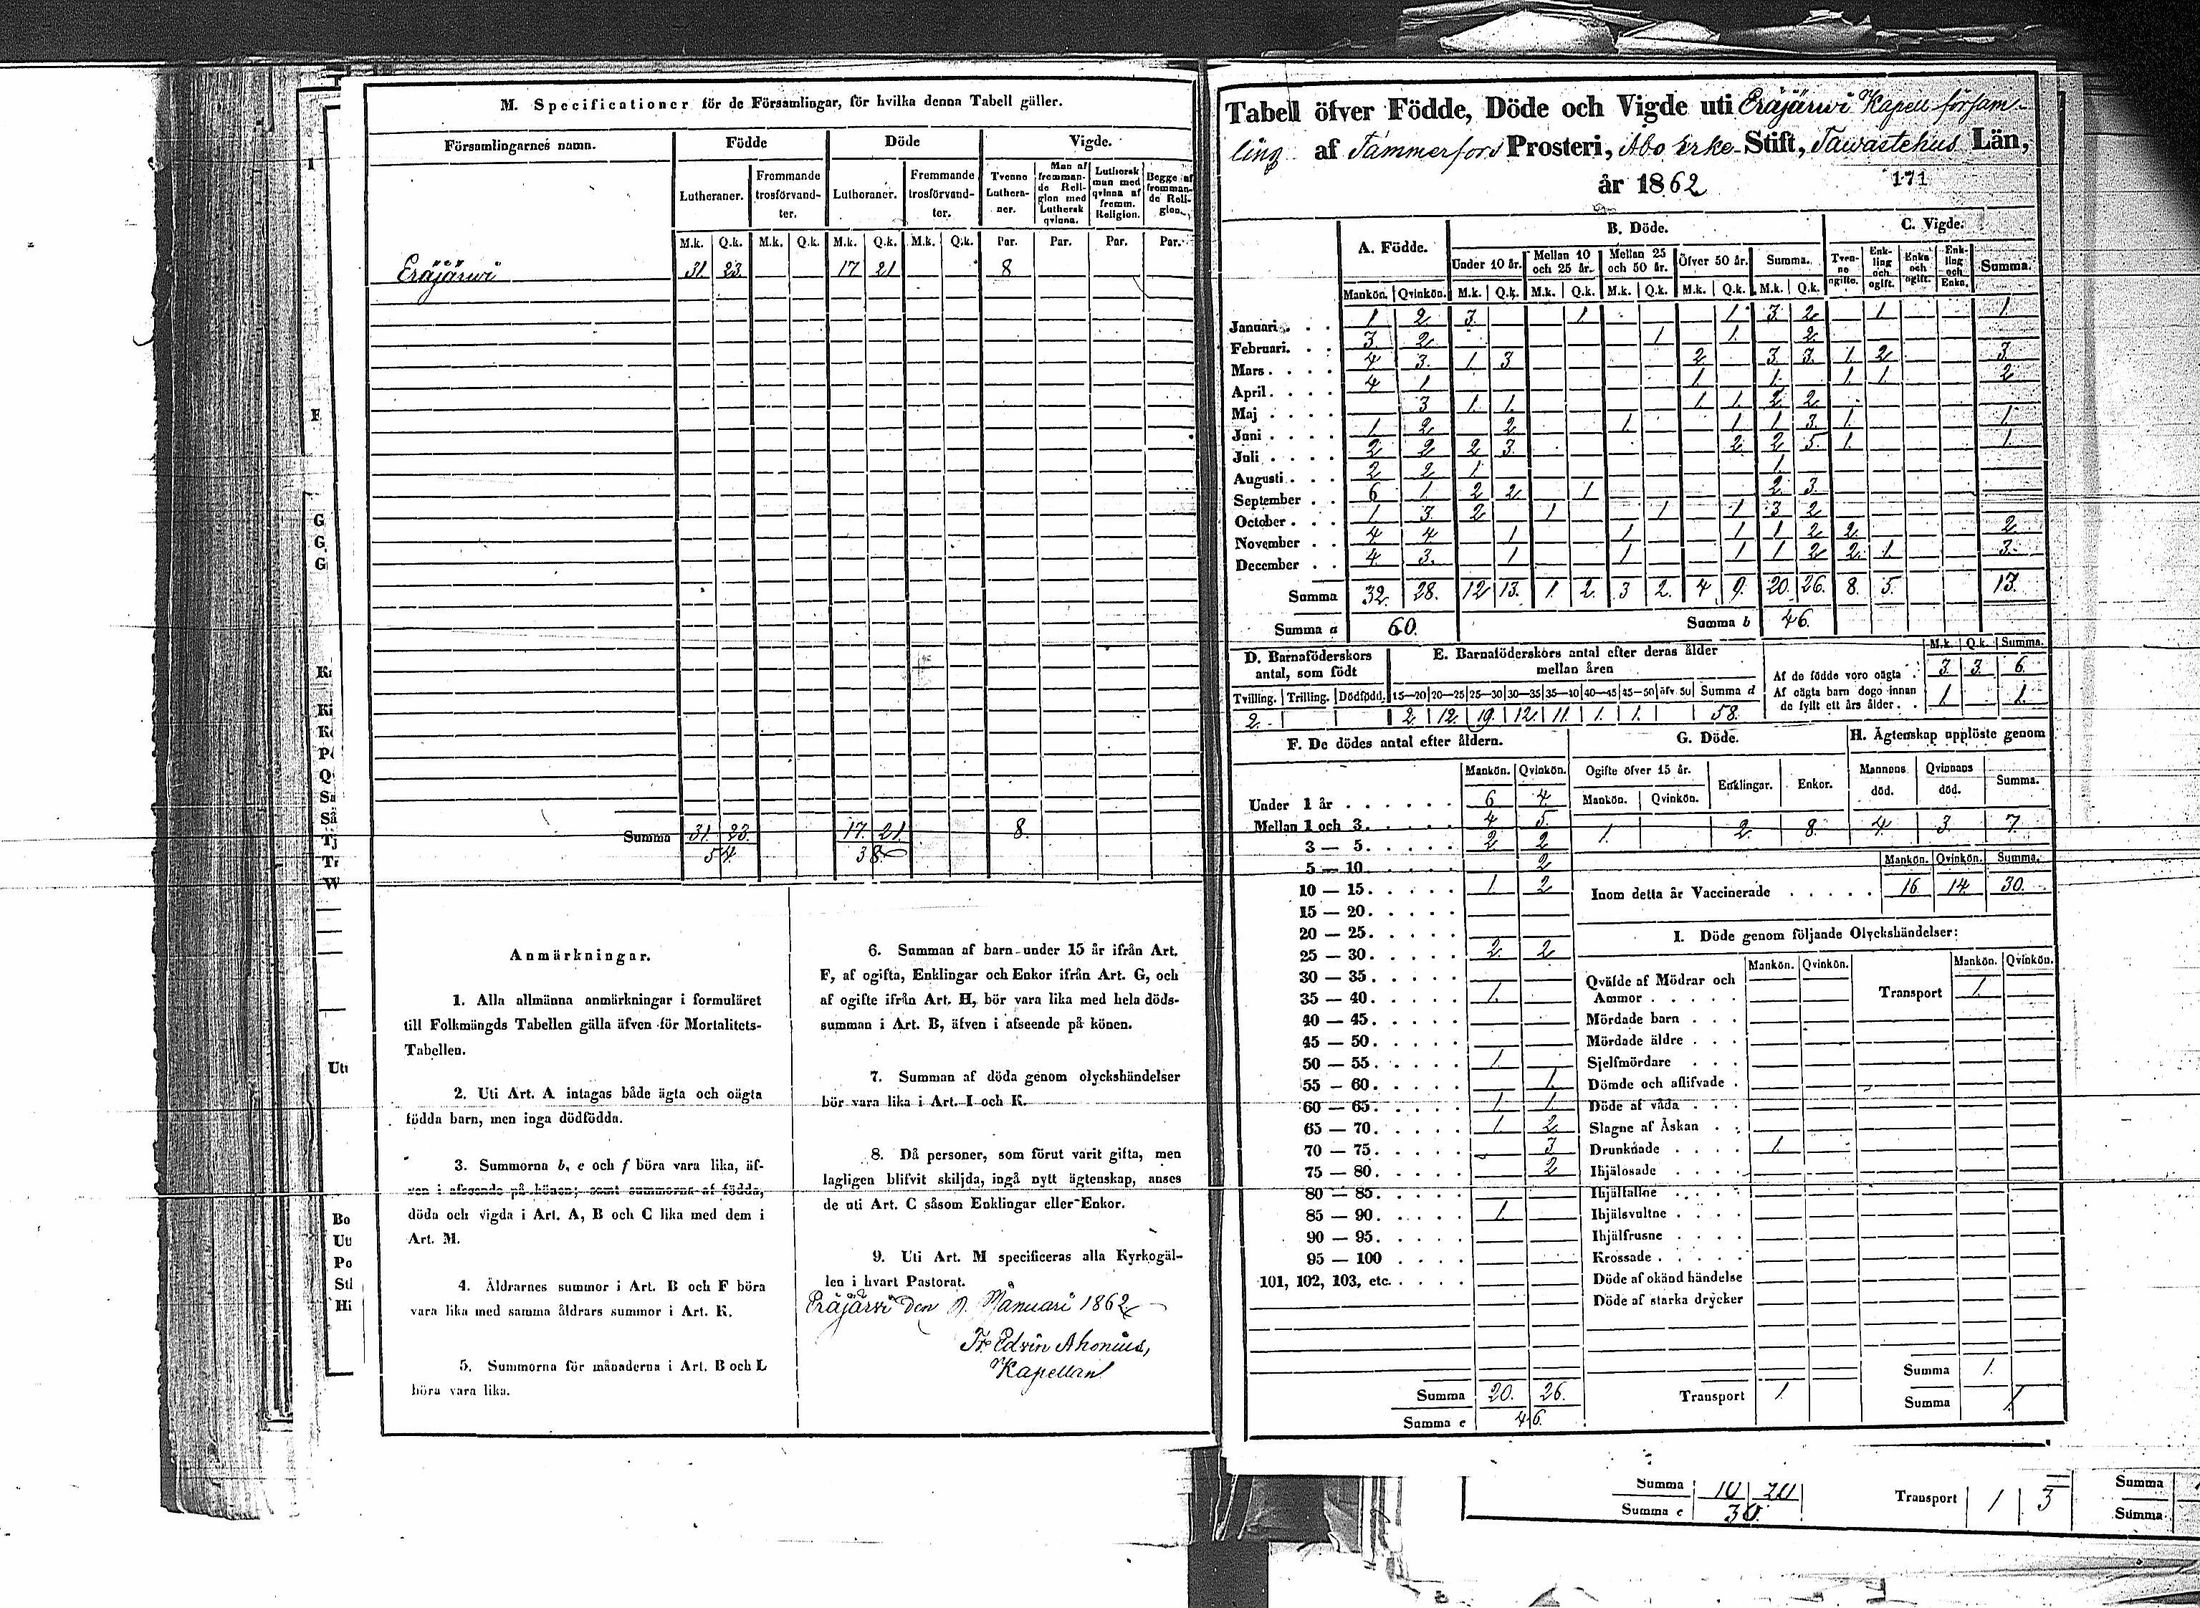 M. Specificationer för de Församlingar, för hvilka denna Tabell gäller.
Församlingarnes namn. Födde Döde Vigde.
Lutheraner. Fremmande trosförvandter. Lutheraner. Fremmande trosförvandter. Tvenne Lutheraner. Man af fremmande Religion med Luthersk qvinna. Luthersk man med qvinna af fremm. Religion. Begge af fremmande Religion.
M.k. Q.k. M.k. Q.k. M.k. Q.k. M.k. Q.k. Par. Par. Par. Par.
Eräjärwi 31 23 17 21 8
Summa 31. 23. 17. 21. 8.
54. 38
Anmärkningar.
1. Alla allmänna anmärkningar i formuläret
till Folkmängds Tabellen gälla äfven för Mortalitets-
Tabellen.
2. Uti Art. A intagas både ägta och oägta
födda barn, men inga dödfödda.
3. Summorna b, e och f böra vara lika, äf-
ven i afseende på könen; samt summorna af födda,
döda och vigda i Art. A, B och C lika med dem i
Art. M.
4. Åldrarnes summor i Art. B och F böra
vara lika med samma åldrars summor i Art. K.
5. Summorna för månaderna i Art. B och L
böra vara lika.
6. Summan af barn under 15 år ifrån Art.
F, af ogifta, Enklingar och Enkor ifrån Art. G, och
af ogifte ifrån Art. H, bör vara lika med hela döds-
summan i Art. B, äfven i afseende på könen.
7. Summan af döda genom olyckshändelser
bör vara lika i Art. I och K.
8. Då personer, som förut varit gifta, men
lagligen blifvit skiljda, ingå nytt ägtenskap, anses
de uti Art. C såsom Enklingar eller Enkor.
9. Uti Art. M specificeras alla Kyrkogäl-
len i hvart Pastorat.
Eräjärvi den Januari 1862
Fr Edvin Ahonius,
Kapellan
Tabell öfver Födde, Döde och Vigde uti Eräjärwi Kapell försam-
ling af Tammerfors Prosteri, Åbo Erke-Stift, Tawastehus Län,
år 1862 171
A. Födde. B. Döde. C. Vigde.
Under 10 år. Mellan 10 och 25 år. Mellan 25 och 50 år. Öfver 50 år. Summa. Tvenne ogifte. Enkling och ogift. Enka och ogift. Enkling och Enka. Summa.
Mankön. Qvinkön. M.k. Q.k. M.k. Q.k. M.k. Q.k. M.k. Q.k. M.k. Q.k.
Januari 1 2 3 1 1 3 2 1 1.
Februari. 3 2 1 1. 2
Mars 4 3. 1 3 2 3 3. 1. 2 3.
April 4 1 1 1. 1 1. 2
Maj 3 1. 1. 1 1. 2 2
Juni 1 2 2 1. 1 1 3. 1. 1.
Juli 2 2 2 3. 2 2 5. 1. 1.
Augusti 2 2 1 1.
September 6 1 2 2 1 2 3.
October 1 3. 2 1 1 1 3 2
November 4 4 1 1 1 1 2 2. 2
December 4 3. 1 1 1 1 2 2. 1 3.
Summa 32. 28. 12 13. 1. 2. 3 2. 4 9. 20. 26. 8. 5. 13.
Summa a 60. Summa b 46.
D. Barnaföderskors antal, som födt
Tvilling. Trilling. Dödfödd.
2.
E. Barnaföderskors antal efter deras ålder mellan åren
15—20 20—25 25—30 30—35 35—40 40—45 45—50 öfv. 50 Summa d
2. 12. 19. 12. 11. 1. 1. 58.
M.k. Q.k. Summa.
Af de födde voro oägta 3. 3. 6.
Af oägta barn dogo innan de fyllt ett års ålder 1. 1.
F. De dödes antal efter åldern.
Mankön. Qvinkön.
Under 1 år 6 4.
Mellan 1 och 3. 4 5.
3 — 5. 2 2
5 — 10 2
10 — 15. 1. 2
15 — 20.
20 — 25.
25 — 30 2. 2
30 — 35.
35 — 40. 1.
40 — 45.
45 — 50.
50 — 55. 1.
55 — 60. 1.
60 — 65. 1. 1.
65 — 70. 1. 2
70 — 75. 3
75 — 80. 2
80 — 85.
85 — 90. 1.
90 — 95.
95 — 100
101, 102, 103, etc.
Summa 20. 26.
Summa e 46.
G. Döde.
Ogifte öfver 15 år. Enklingar. Enkor.
Mankön. Qvinkön.
1. 2. 8.
H. Ägtenskap upplöste genom
Mannens död. Qvinnans död. Summa.
4. 3. 7.
Mankön. Qvinkön. Summa.
Inom detta år Vaccinerade 16 14 30.
I. Döde genom följande Olyckshändelser:
Mankön. Qvinkön. Mankön. Qvinkön.
Qväfde af Mödrar och Ammor Transport 1.
Mördade barn
Mördade äldre
Sjelfmördare
Dömde och aflifvade
Döde af våda
Slagne af Åskan
Drunknade 1.
Ihjälosade
Ihjälfallne
Ihjälsvultne
Ihjälfrusne
Krossade
Döde af okänd händelse
Döde af starka drycker
Summa 1.
Transport 1. Summa 1.
Summa 10 20 Transport 1 3 Summa
Summa e 30. Summa